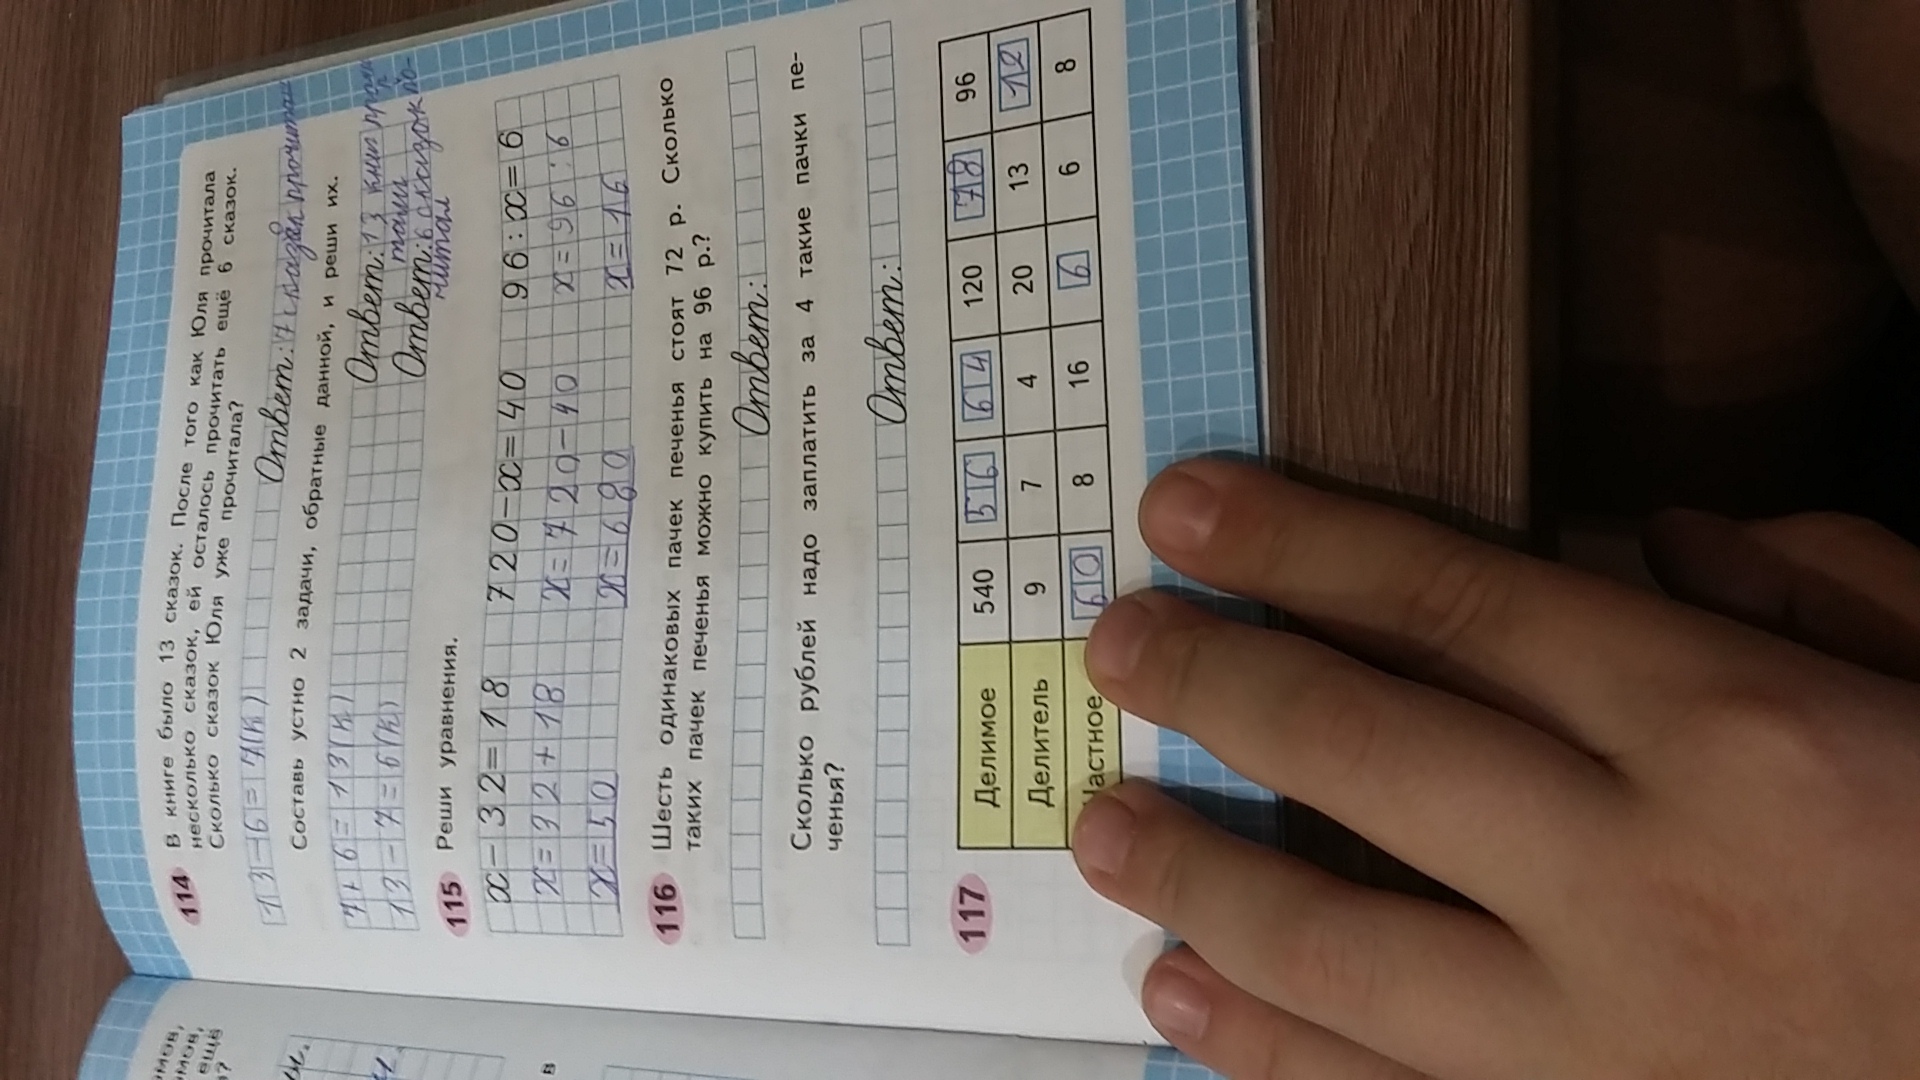 114 В книге было 13 сказок. После того как Юля прочитала
несколько сказок, ей осталось прочитать ещё 6 сказок.
Сколько сказок Юля уже прочитала?
13-6=7(к) Ответ: 7 сказок прочитала
Составь устно 2 задачи, обратные данной, и реши их.
7+6=13(к) Ответ: 13 книг про
тали
13-7=6(к) Ответ: 6 сказок по-
читал
115 Реши уравнения.
x-32=18 720-x=40 96:x=6
x=32+18 x=720-40 x=96:6
x=50 x=680 x=16
116 Шесть одинаковых пачек печенья стоят 72 р. Сколько
таких пачек печенья можно купить на 96 р.?
Ответ:
Сколько рублей надо заплатить за 4 такие пачки пе-
ченья?
Ответ:
117
Делимое 540 56 64 120 78 96
Делитель 9 7 4 20 13 12
Частное 60 8 16 6 6 8
омов,
мов,
ещё
?
в